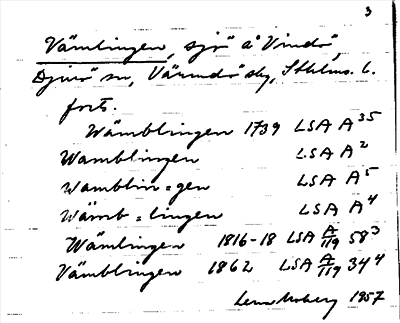 3
Vämlingen, sjö å Vindö,
Djurö sn, Värmdö skg, Sthlms l.
forts.
Wämblingen 1739 LSA A 35
Wamblingen LSA A 2
Wamblin=gen LSA A 5
Wämb=lingen LSA A 4
Wämlingen 1816-18 LSA A/119 58 3
Vämblingen 1862 LSA A/119 34 4
Moberg 1957